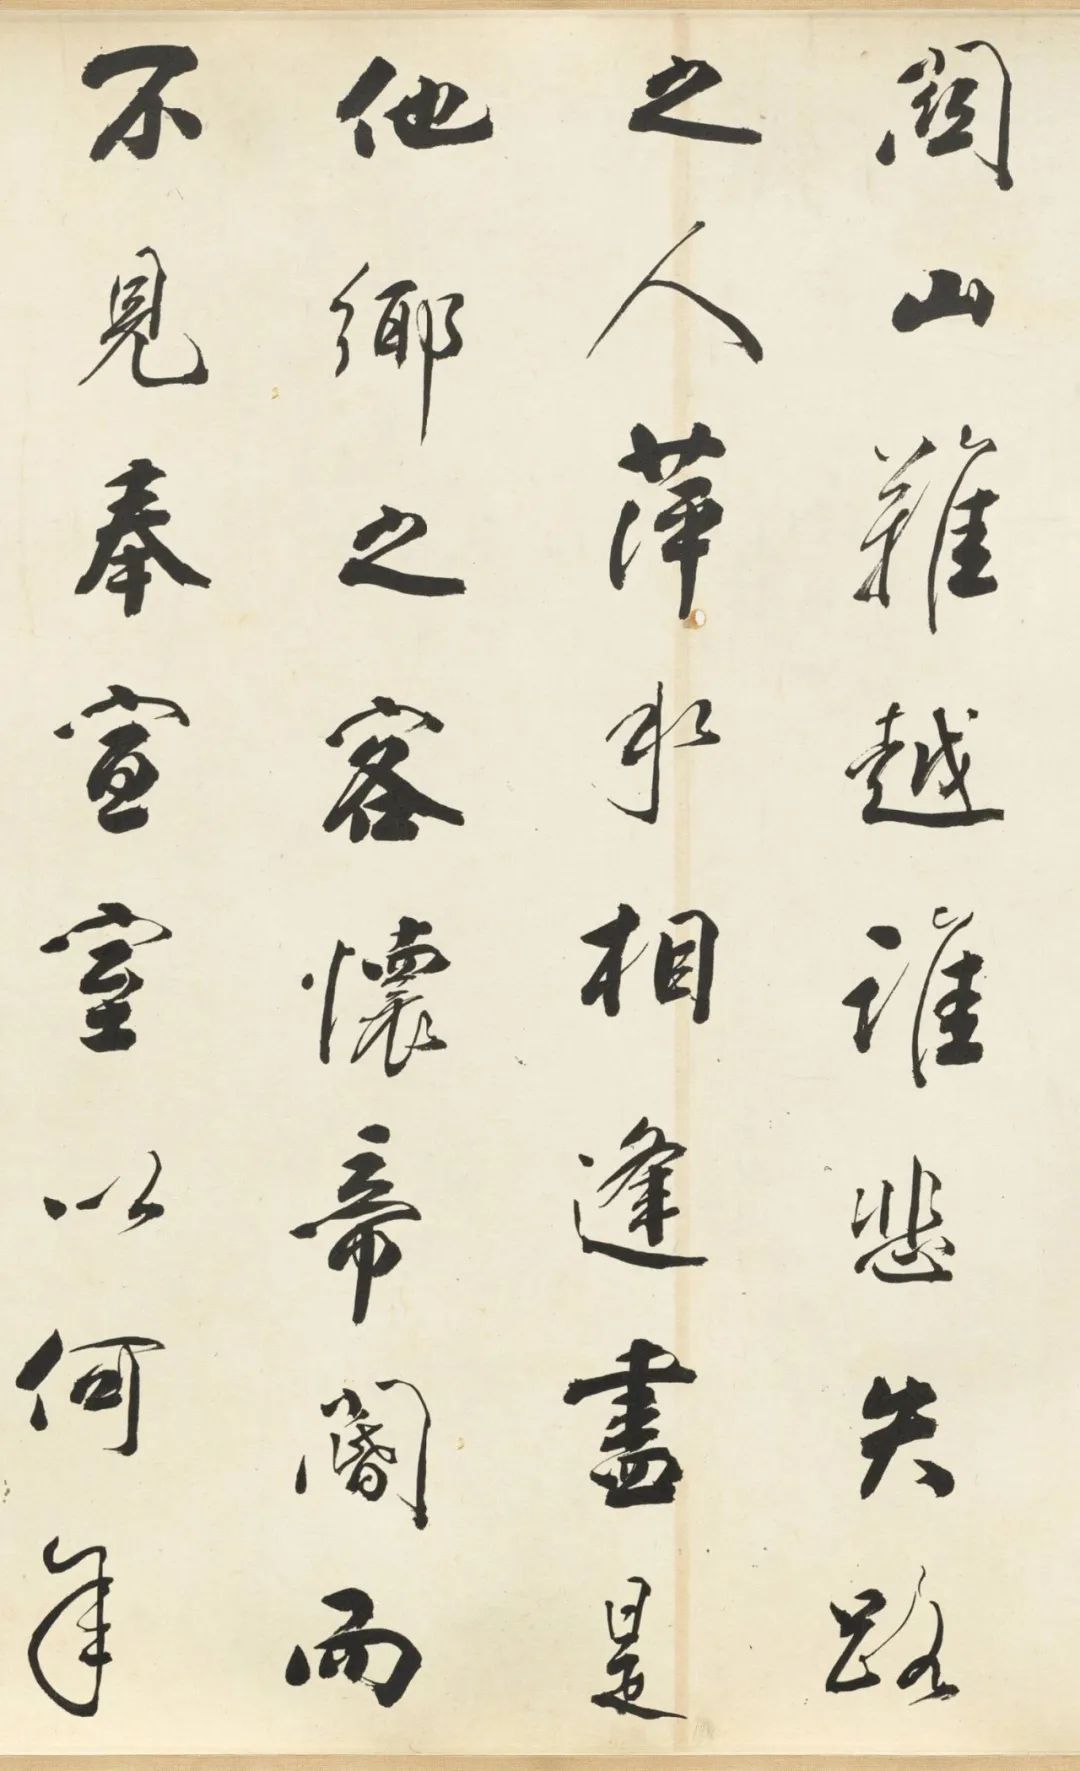 關山難越誰悲失路
之人萍水相逢盡是
他鄉之客懷帝閽而
不見奉宣室以何年